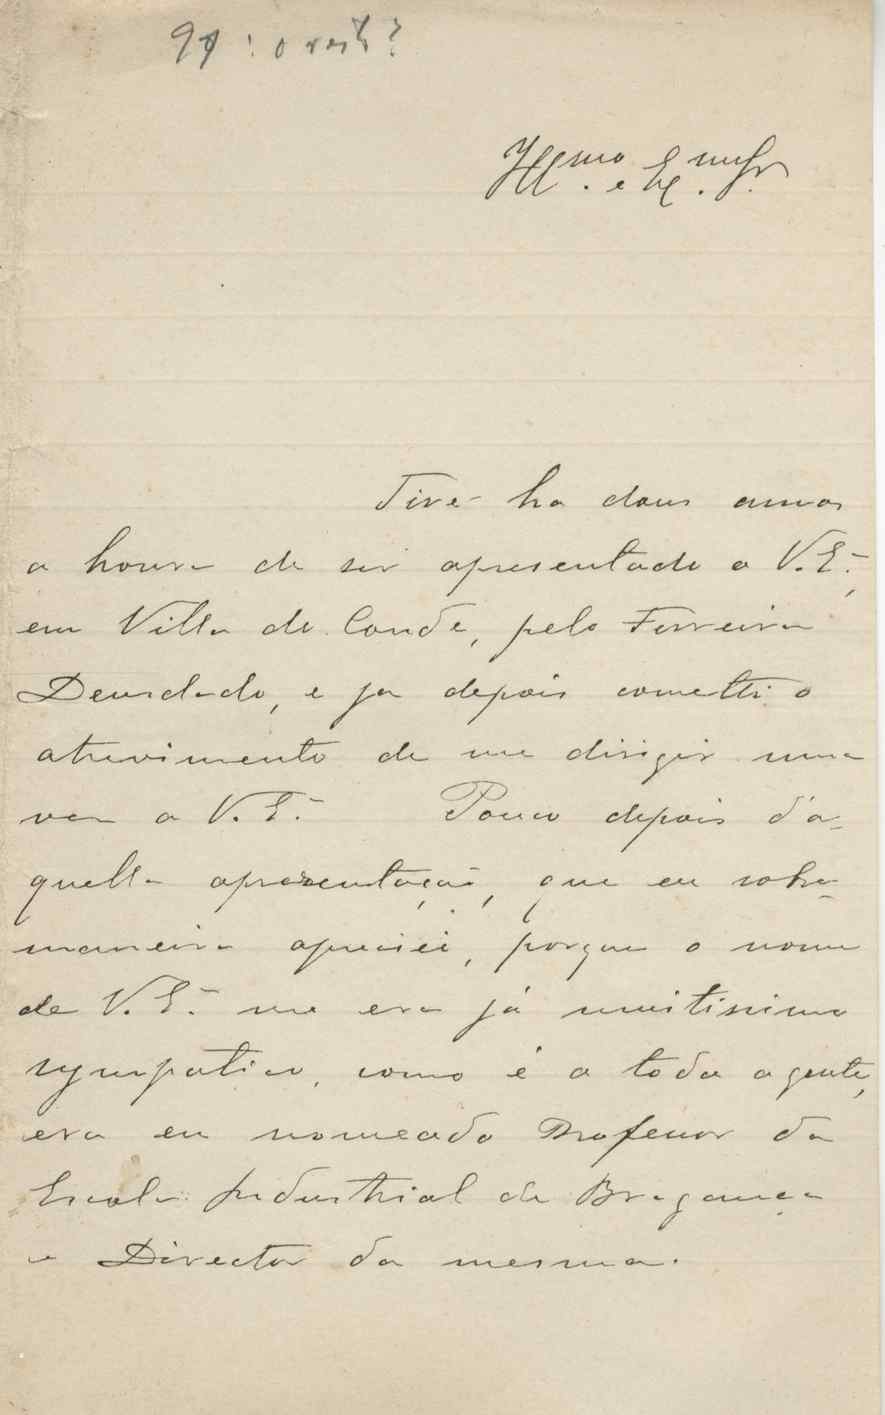 Ill.mo e Ex.mo Sr.
Tive ha dous annos
a honra de ser apresentado a V. E.ª,
em Villa do Conde, pelo Ferreira
Deusdado, e ja depois cometti o
atrevimento de me dirigir uma
vez a V. E.ª Pouco depois d'a-
quella apresentação, que eu sobre-
maneira apreciei, porque o nome
de V. E.ª me era já muitissimo
sympatico, como é a toda a gente,
era eu nomeado Professor da
Escola Industrial de Bragança
e Director da mesma.